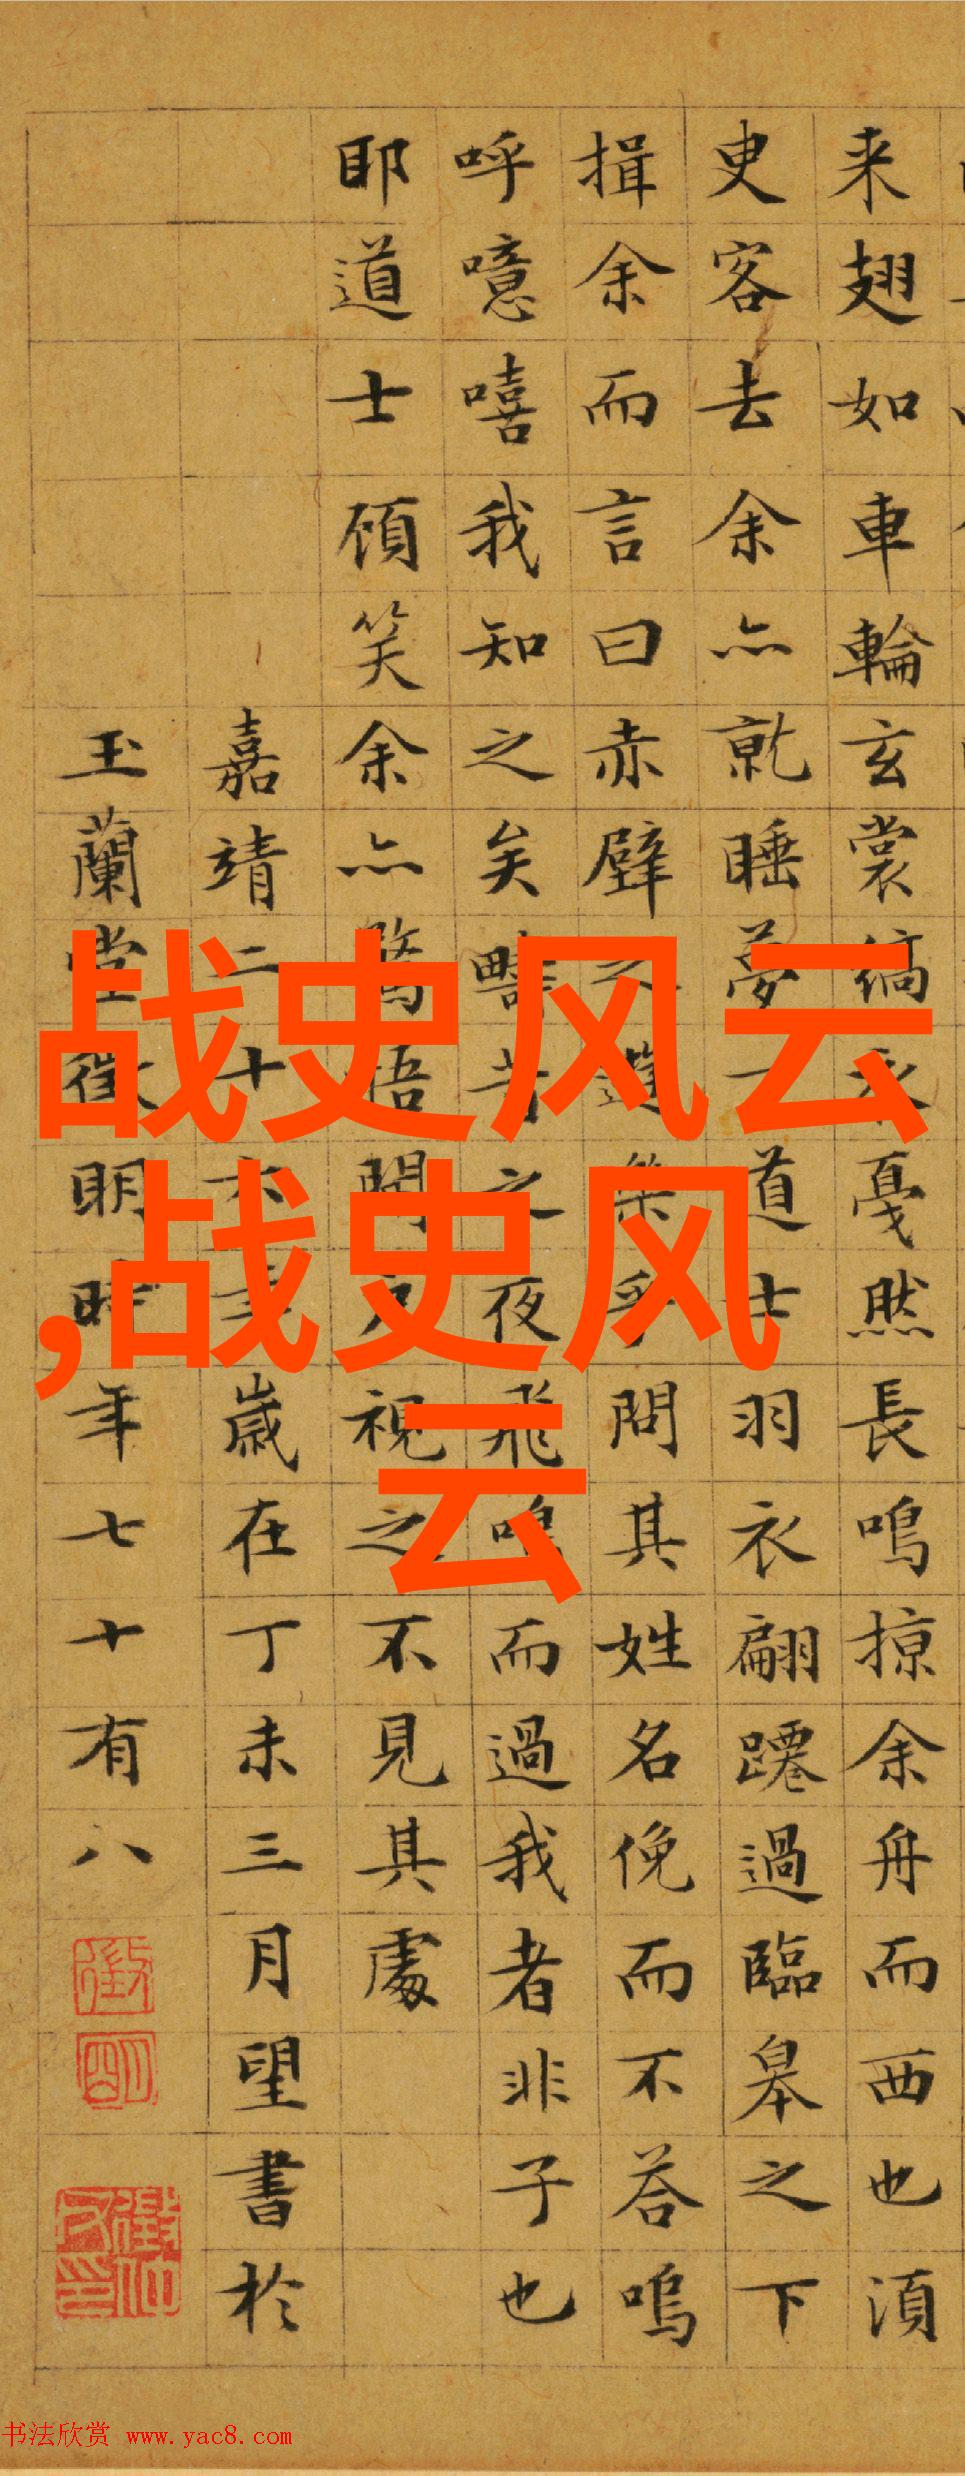 来翅如車輪玄裳縞衣戞然長鳴掠余舟而西也湏
叓客去余亦就睡夢一道士羽衣翩躚過臨皋之下
揖余而言曰赤壁之遊樂乎問其姓名俛而不荅嗚
呼噫嘻我知之矣疇昔之夜飛鳴而過我者非子也
耶道士顧笑余亦驚悟開戶視之不見其處
嘉靖二十六年歲在丁未三月望書於
玉蘭堂徵明時年七十有八
徵
明
战史风云
,战史风
云
书法欣赏 www.yac8.com